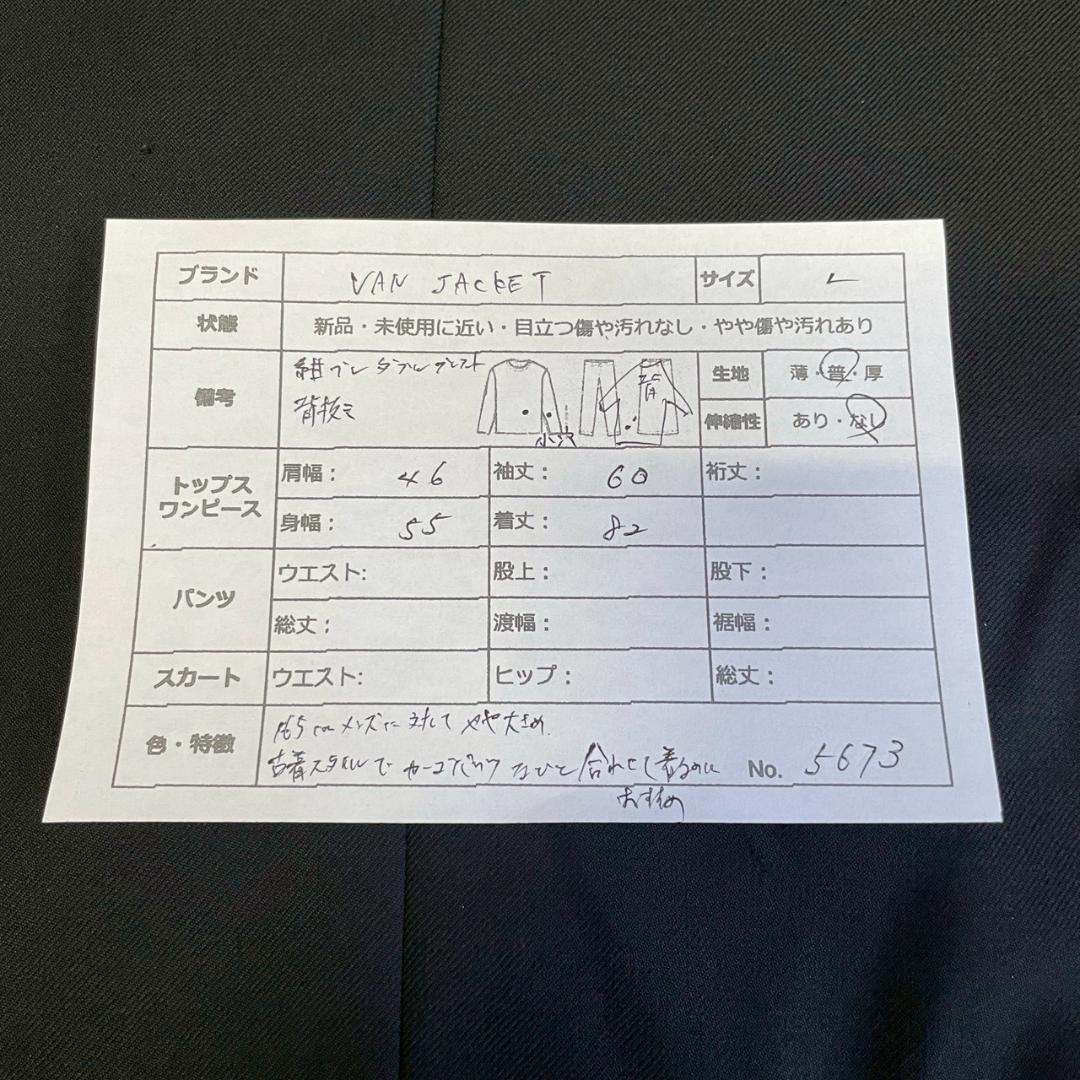 ブランド VAN JACKET サイズ L
状態 新品・未使用に近い・目立つ傷や汚れなし・やや傷や汚れあり
備考 紺ブレ ダブルブレスト 生地 薄・普・厚
背抜き 背 小穴 伸縮性 あり・なし
トップス ワンピース 肩幅: 46 袖丈: 60 裄丈:
身幅: 55 着丈: 82
パンツ ウエスト: 股上: 股下:
総丈: 渡幅: 裾幅:
スカート ウエスト: ヒップ: 総丈:
色・特徴 165cmメンズに対してやや大きめ
古着スタイルでカーゴパンツなひと合わせて着るのに No. 5673
おすすめ